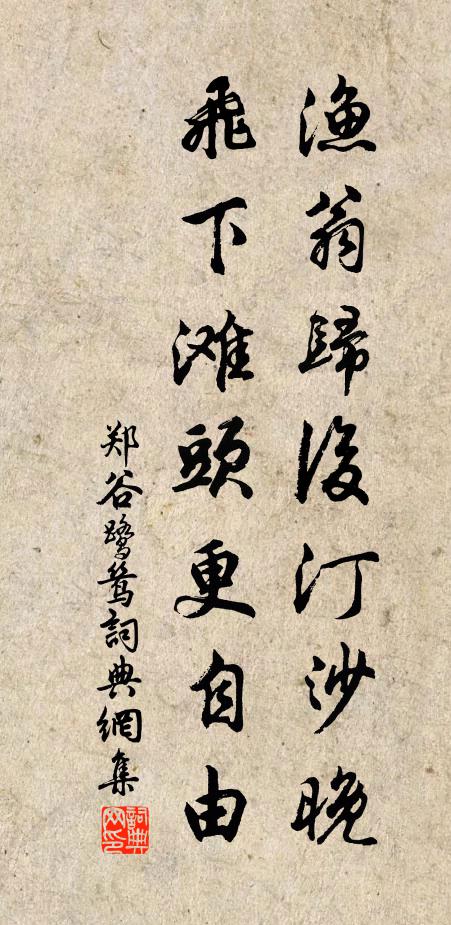 漁翁歸後汀沙晚
飛下滩頭更自由
郑谷鹭鸶詞典網集
詞典
网印